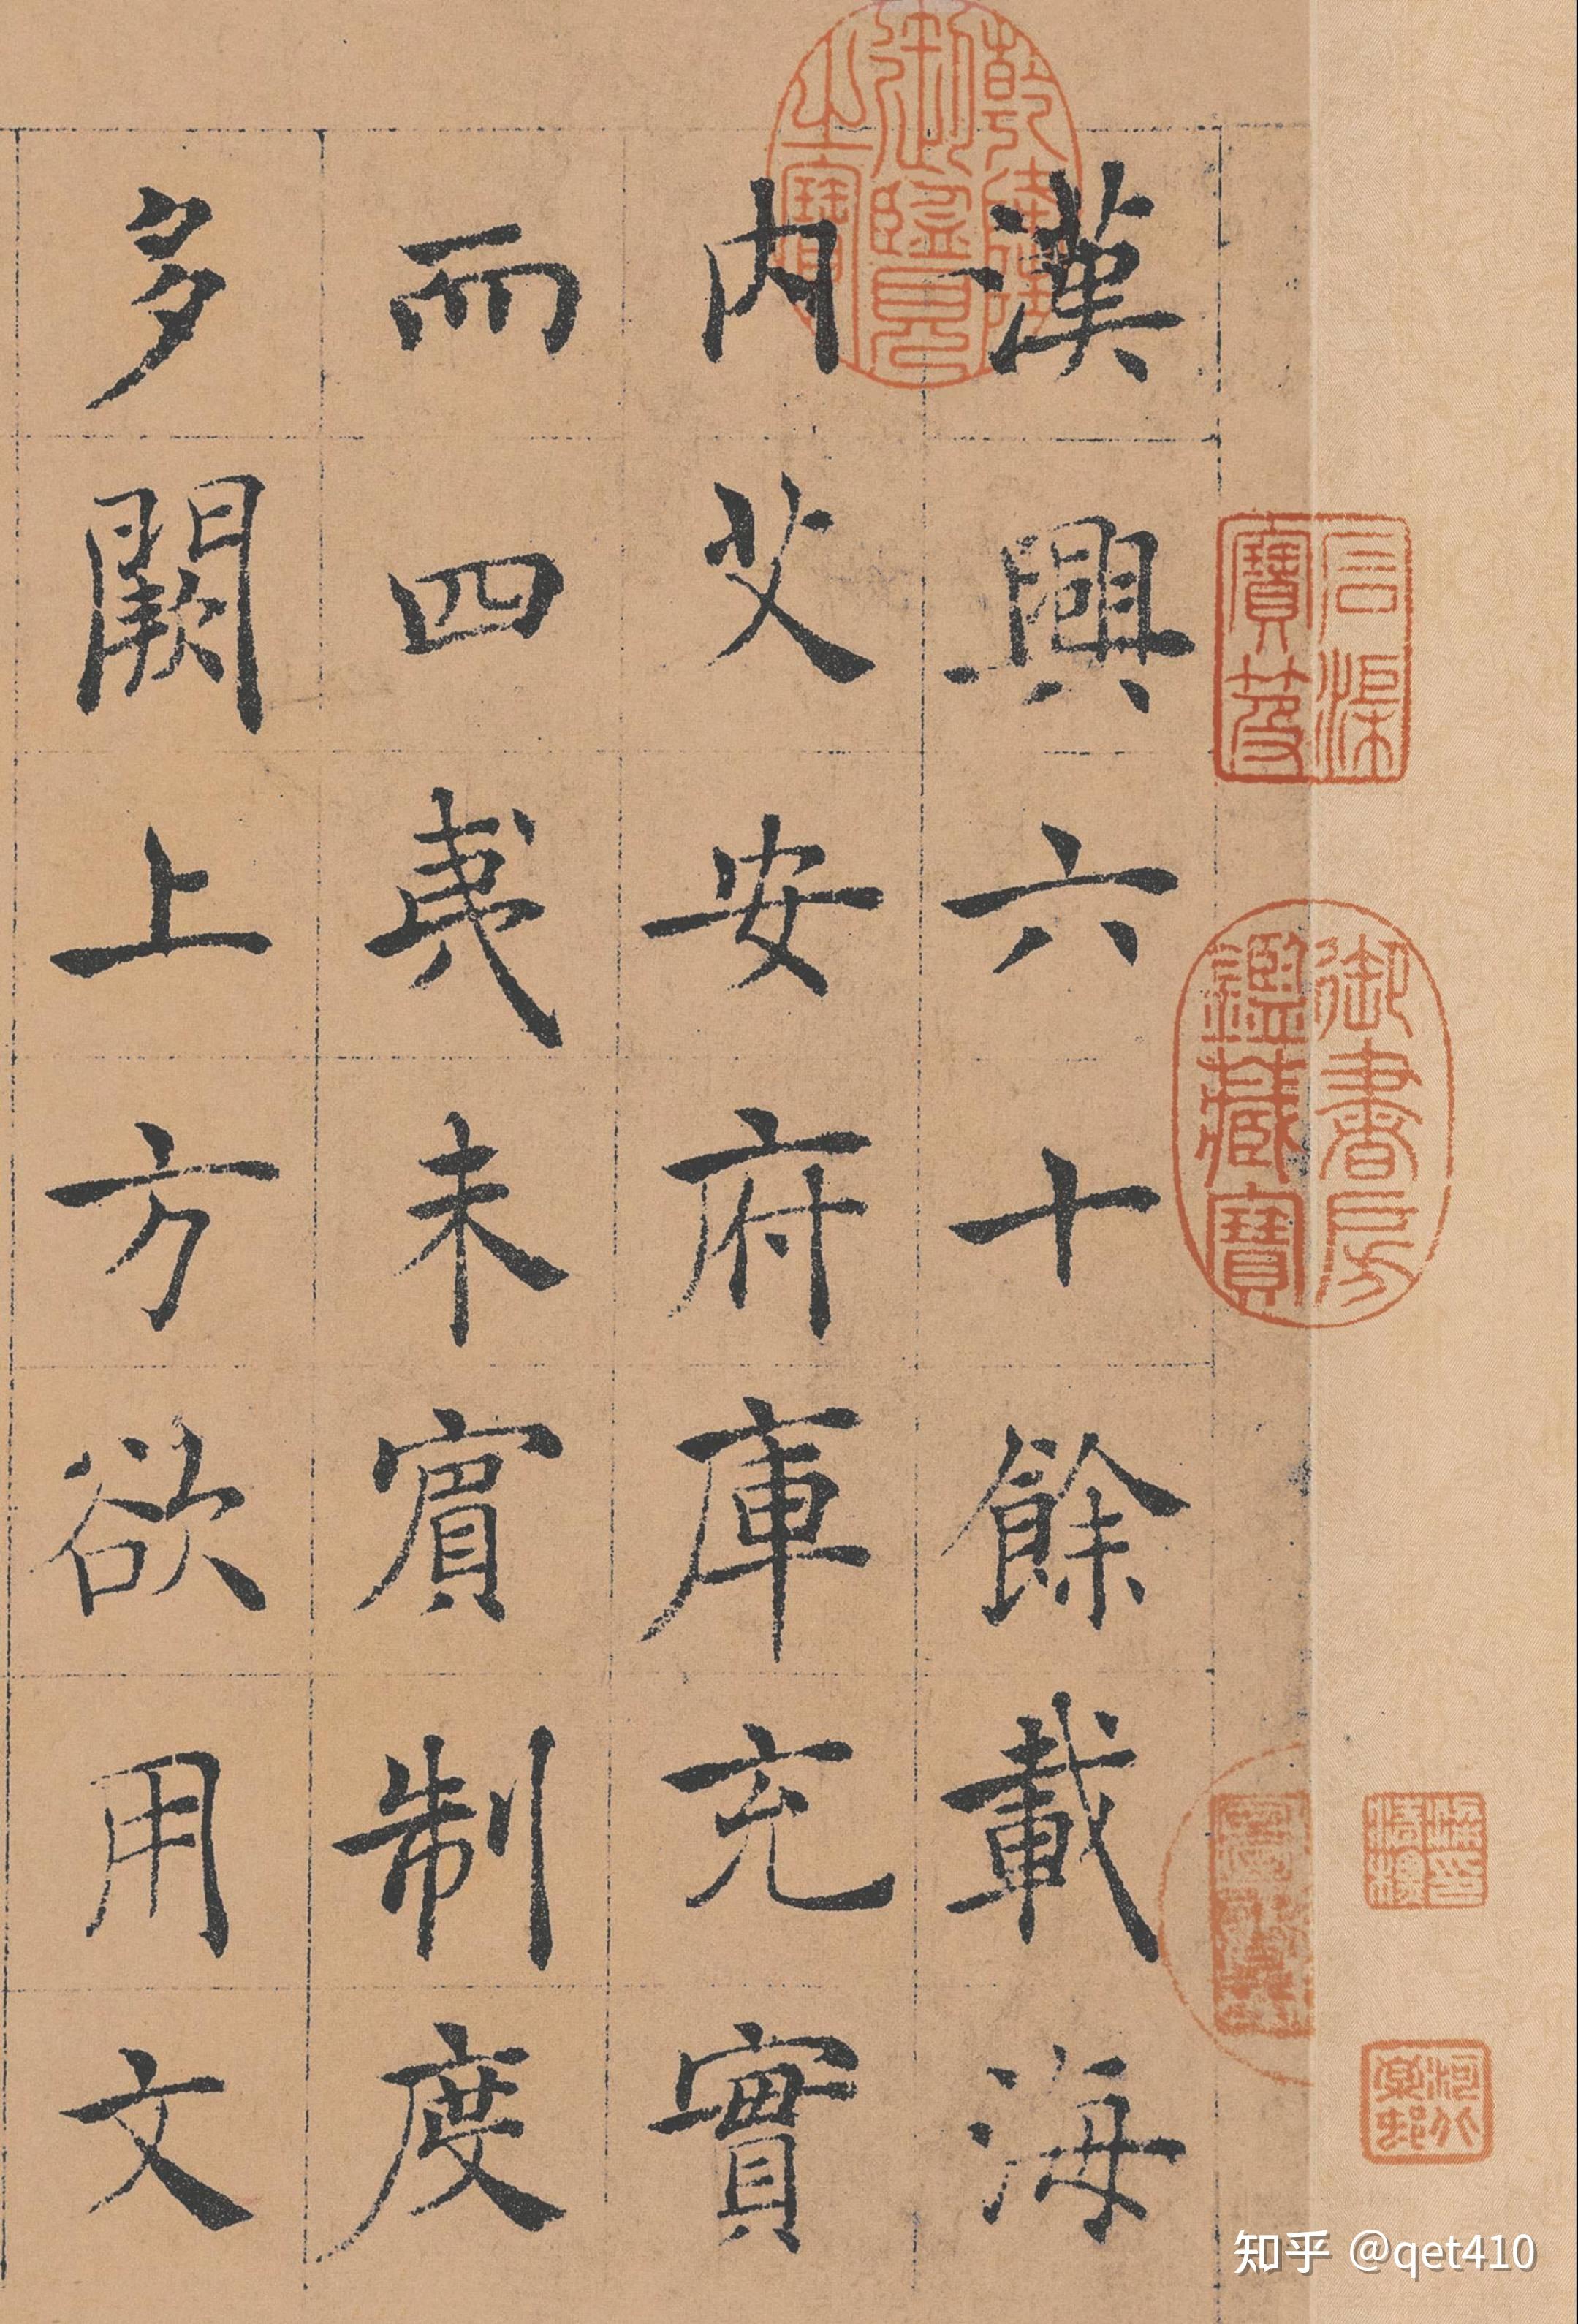 漢興六十餘載海
内艾安府庫充實
而四夷未賓制度
多闕上方欲用文
乾隆御覽之寶
石渠寶笈
御書房鑑藏寶
知乎 @qet410